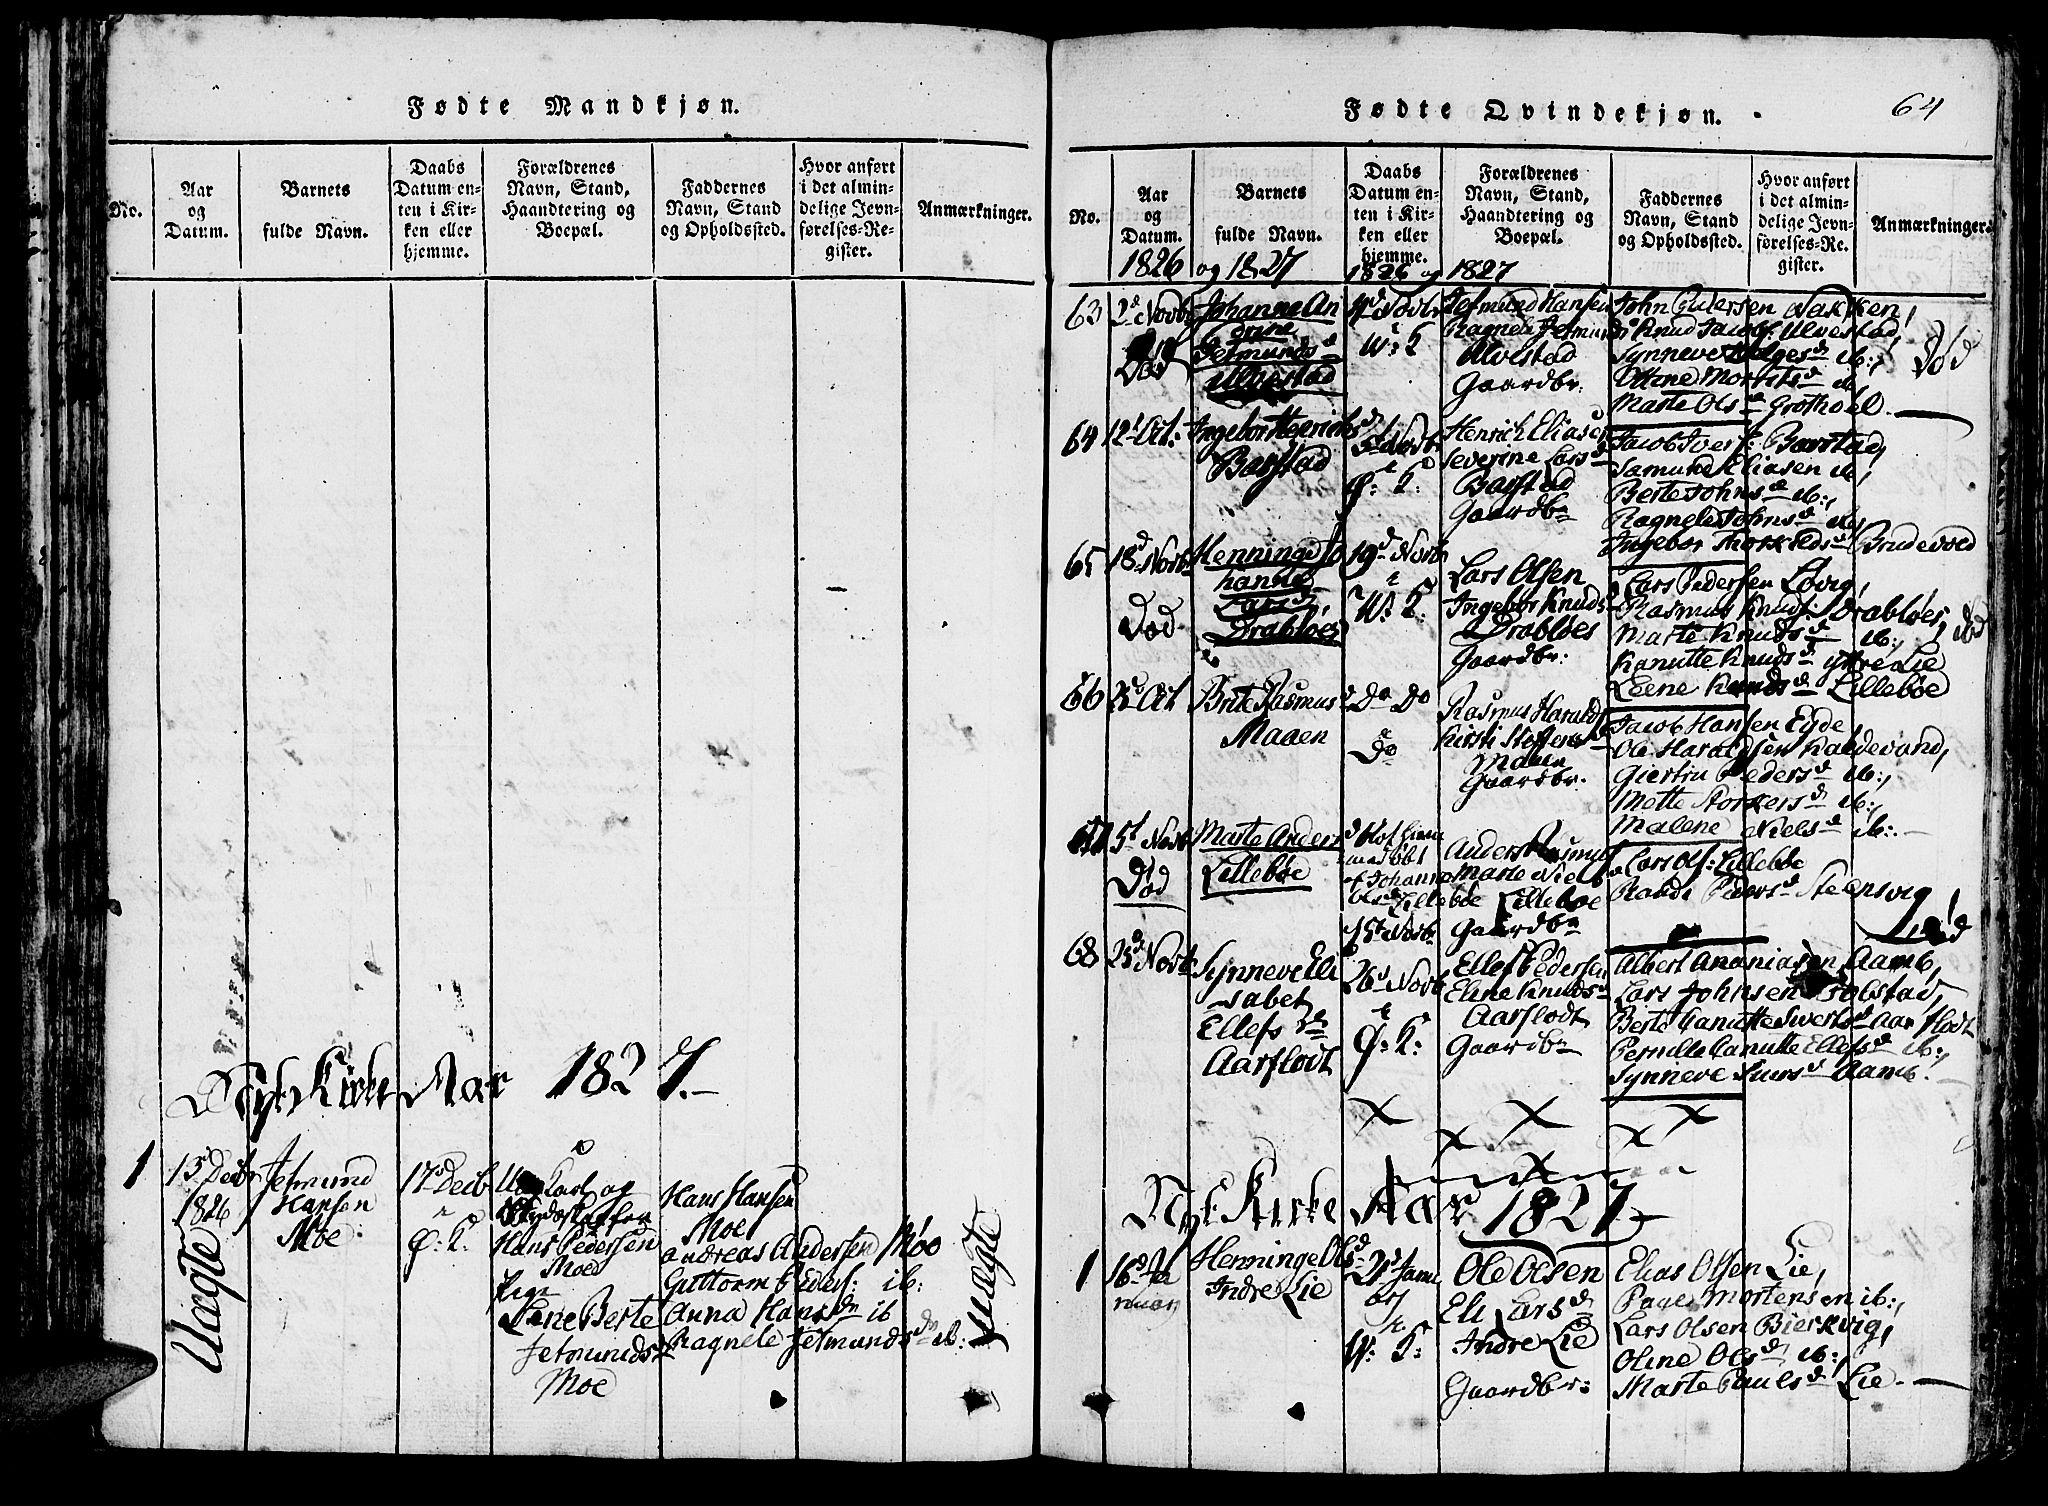 Fødte Mandkjøn.
No.
Aar og Datum.
Barnets fulde Navn.
Daabs Datum enten i Kirken eller hjemme.
Forældrenes Navn, Stand, Haandtering og Boepæl.
Faddernes Navn, Stand og Opholdssted.
Hvor anført i det almindelige Jevnførelses-Register.
Anmærkninger.
Nyt Kirke Aar 1827.
1
13d Decbr
1826
Uægte
Jetmund
Hansen
Moe
17d Decb
Ø: K:
Karl og
Hans Pedersen
Moe
Pige
Lene Berte
Jetmundsd
Moe
Hans Hansen
Moe
Andreas Andersen Moe
Guttorm Peders: ib:
Anna Hansdn ib
Ragnele Jetmundsdn ib:
Uægte
Fødte Qvindekjøn.
64
No.
Aar og Datum.
Barnets fulde Navn.
Daabs Datum enten i Kirken eller hjemme.
Forældrenes Navn, Stand, Haandtering og Boepæl.
Faddernes Navn, Stand og Opholdssted.
Hvor anført i det almindelige Jevnførelses-Register.
Anmærkninger.
1826 og 1827 1826 og 1827
63
2d Novb
Død
Johanne An
drine
Jetmundsd
Ulvestad
Novbr
W: K
Jetmund Hansen
Ragnele Jetmundsd
Ulvestad
Gaardbr:
John Pedersen Nakken,
Knud Jacobs: Ulvestad,
Synneve Helgesd ib:,
Oline Morritsd ib
Marte Olsd Grothoel
Død
64
12t Oct:
Ingebor Henrichsd
Barstad
5d Novbr
Ø: K:
Henrich Eliasen
Severine Larsd
Barstad
Gaardbr
Jacob Ivers: Barstad,
Samund Eliasen ib,
Berte Johnsd ib:,
Ragnele Johnsd ib,
Ingebor Thorkildsd Brudevold
65
18d Novb
Død
Henninge Jo
hanne
Larsd
Drabløes
19d Novb
W: K:
Lars Olsen
Ingebor Knudsd
Drabløes
Gaardbr:
Lars Pedersen Løvig,
Rasmus Knuds: Drabløes,
Marte Knudsd ib:,
Kanutte Knudsd ytre Lie
Leene Knudsd Lillebøe
Død
66
23d Oct
Brite Rasmusd
Maaen
Do Do
Do
Rasmus Haralds
Kirsti Steffensd
Maaen
Gaardbr:
Jacob Hansen Eyde
Ole Haraldsen Kaldevand,
Giertru Pedersd ib:,
Mette Storkersd ib:,
Malene Nielsd ib:
67
5t Novb
Død
Marte Andersd
Lillebøe
Johanne
Lillebøe
15t Novb
Anders Rasmus
Marte Niels
Lillebøe
Gaardbr
Lars Ols: Lillebøe
Randi Pedersd Steensvig
Død
68
25d Novb
Synneve Eli
sabet
Ellefsdn
Aarflodt
26d Novb
Ø: K:
Ellef Pedersen
Eline Knudsd
Aarflodt
Gaardbr
Albert Ananiasen Aamb,
Lars Johnsen Folstad,
Berte Canutte Sivertsd Aarflodt
Pernille Canutte Ellefsd ib:,
Synneve Siversd Aamb:
Nyt Kirke Aar 1827
1
16d Ja
nuary
Henninge Olsd
Indre Lie
21d Janu
ary
W: K:
Ole Olsen
Eli Larsd
Indre Lie
Gaardbr:
Elias Olsen Lie,
Paul Mortensen ib:,
Lars Olsen Bierkvig,
Oline Olsd ib:,
Marte Paulsd Lie